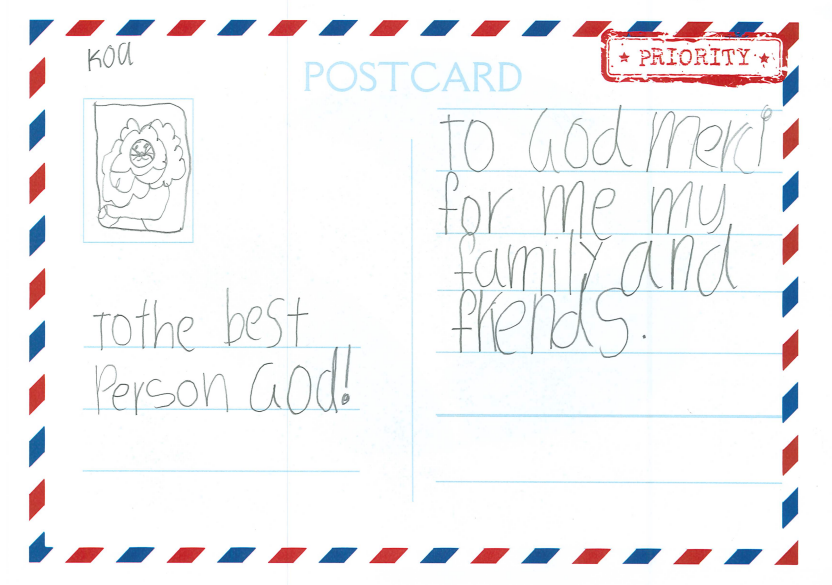 Koa
POSTCARD
★ PRIORITY ★
To the best
Person God!
To God Merci
for me my
family and
friends.